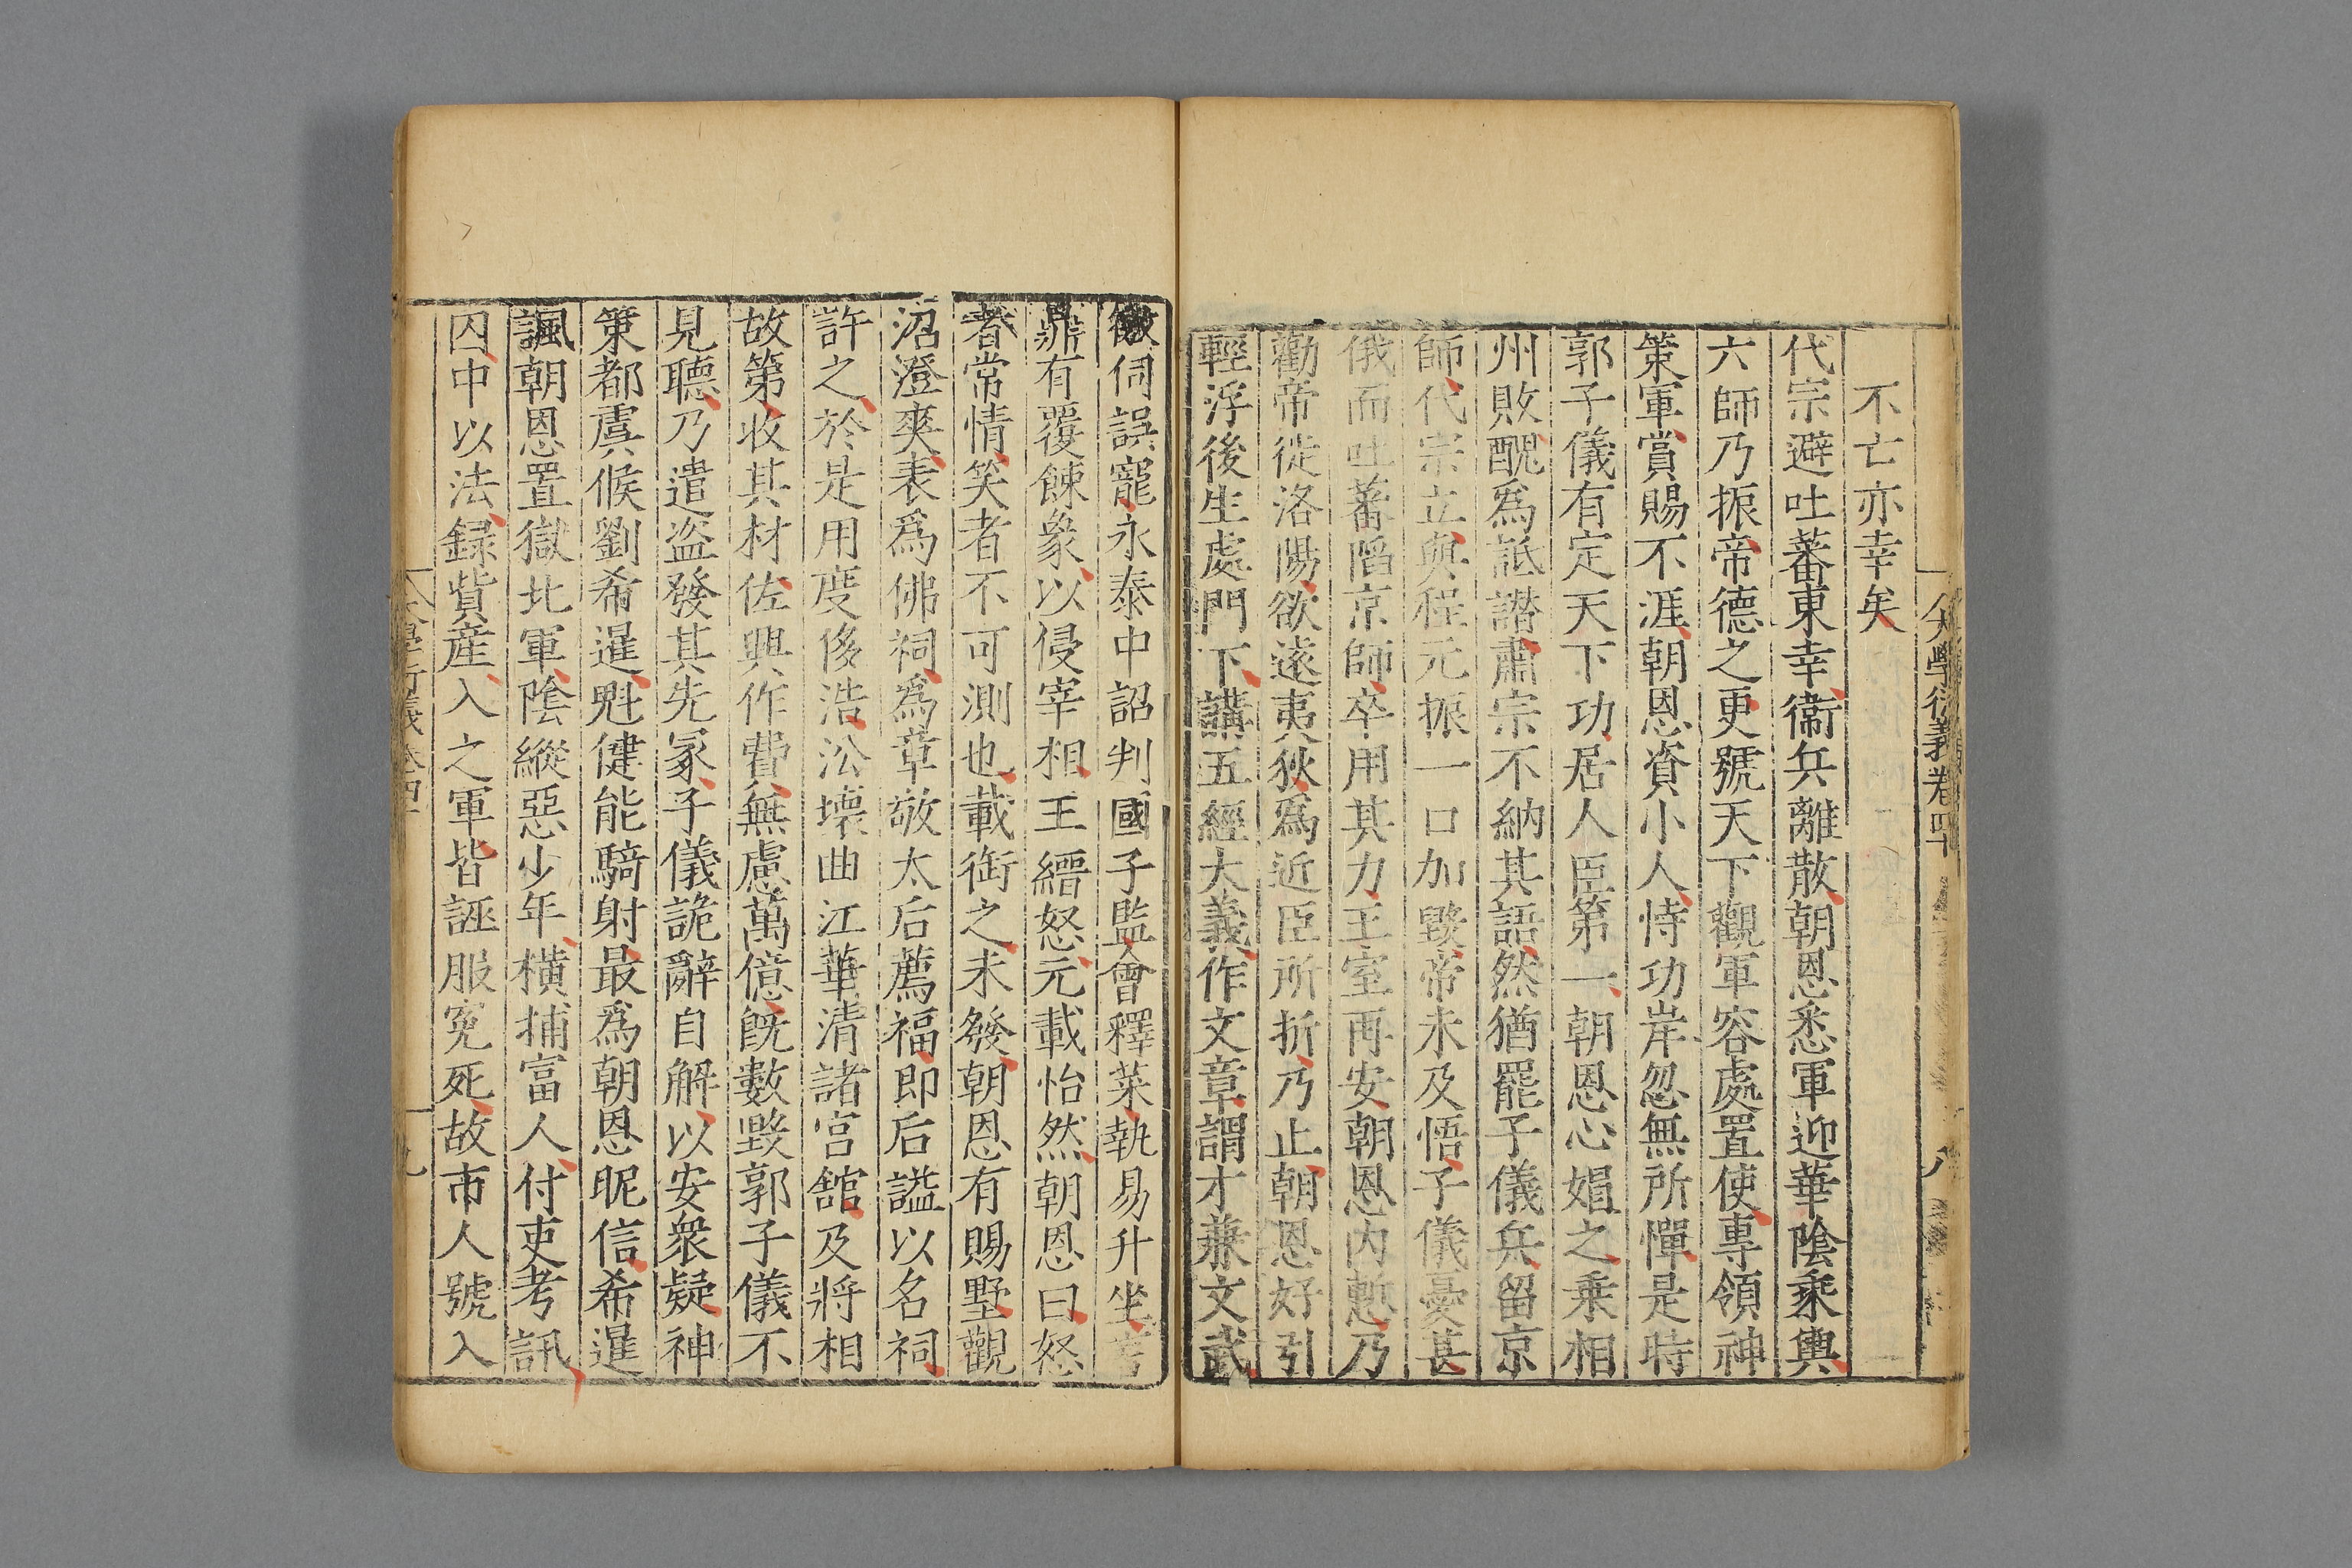 大學衍義卷四十
八
不亡亦幸矣
代宗避吐蕃東幸衞兵離散朝恩悉軍迎華陰乘輿
六師乃振帝德之更號天下觀軍容處置使專領神
策軍賞賜不涯朝恩資小人恃功岸忽無所憚是時
郭子儀有定天下功居人臣第一朝恩心媢之乗相
州敗醜爲詆譖肅宗不納其語然猶罷子儀兵留京
師代宗立與程元振一口加毀帝未及悟子儀憂甚
俄而吐蕃陷京師卒用其力王室再安朝恩内慙乃
勸帝徙洛陽欲遠夷狄爲近臣所折乃止朝恩好引
輕浮後生處門下講五經大義作文章謂才兼文武
徼伺誤寵永泰中詔判國子監會釋菜執易升坐言
鼎有覆餗象以侵宰相王縉怒元載怡然朝恩曰怒
者常情笑者不可測也載銜之未發朝恩有賜墅觀
沼澄爽表爲佛祠爲章敬太后薦福即后謚以名祠
許之於是用度侈浩公壊曲江華清諸宫館及將相
故第收其材佐興作費無慮萬億旣數毀郭子儀不
見聽乃遣盗發其先冢子儀詭辭自解以安衆疑神
策都虞候劉希暹魁健能騎射最爲朝恩昵信希暹
諷朝恩置獄北軍陰縱惡少年横捕富人付吏考訊
囚中以法録貲産入之軍皆誣服寃死故市人號入
大學衍義卷四十
九